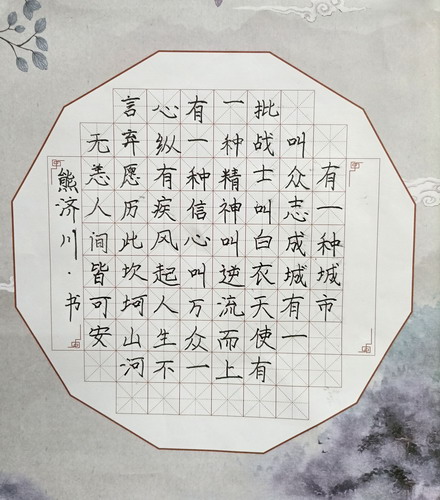 有一种城市
叫众志成城有一
批战士叫白衣天使有
一种精神叫逆流而上
有一种信心叫万众一
心纵有疾风起人生不
言弃愿历此坎坷山河
无恙人间皆可安
熊济川·书